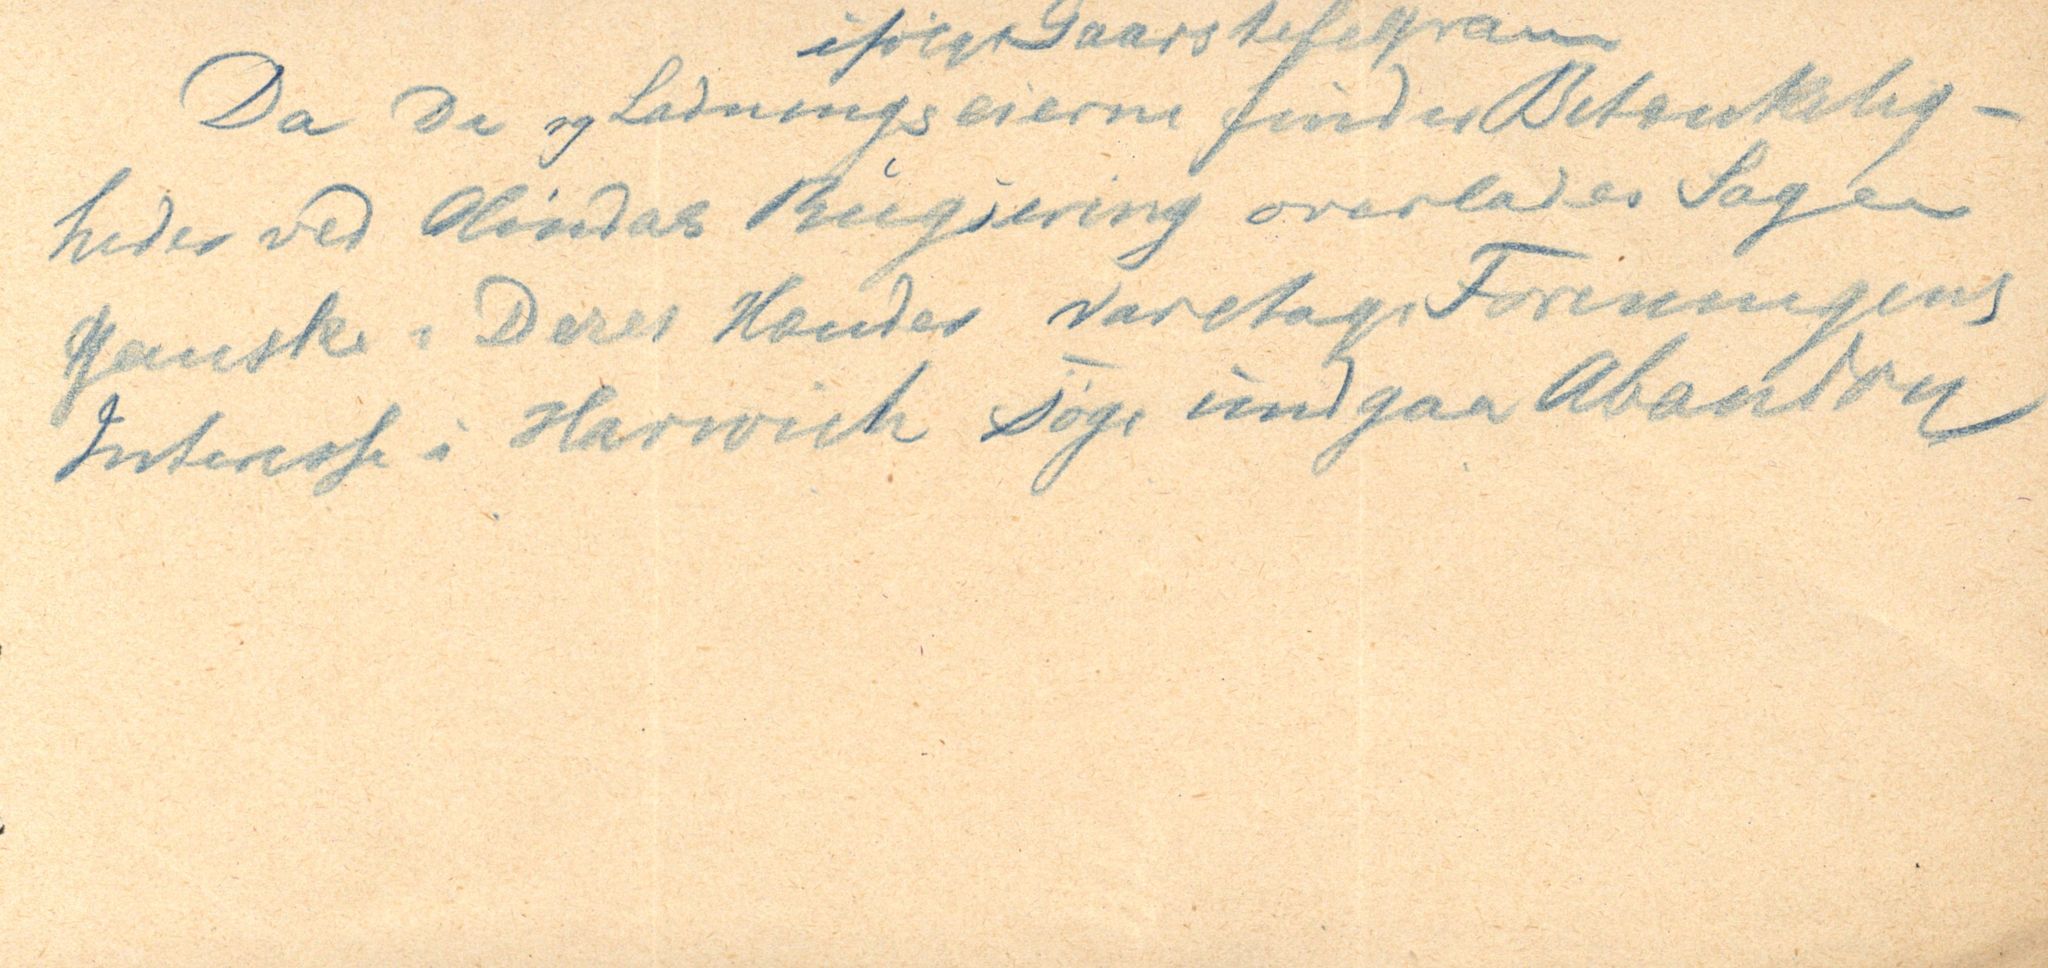 ifølge Gaarstelegram
Da De og Ladningseierne finder Betænkelig-
heder ved Alindas Bugsering overlades Sagen
ganske i Deres Hænder varetage Foreningens
Interesse i Harwich søge undgaa Abandon